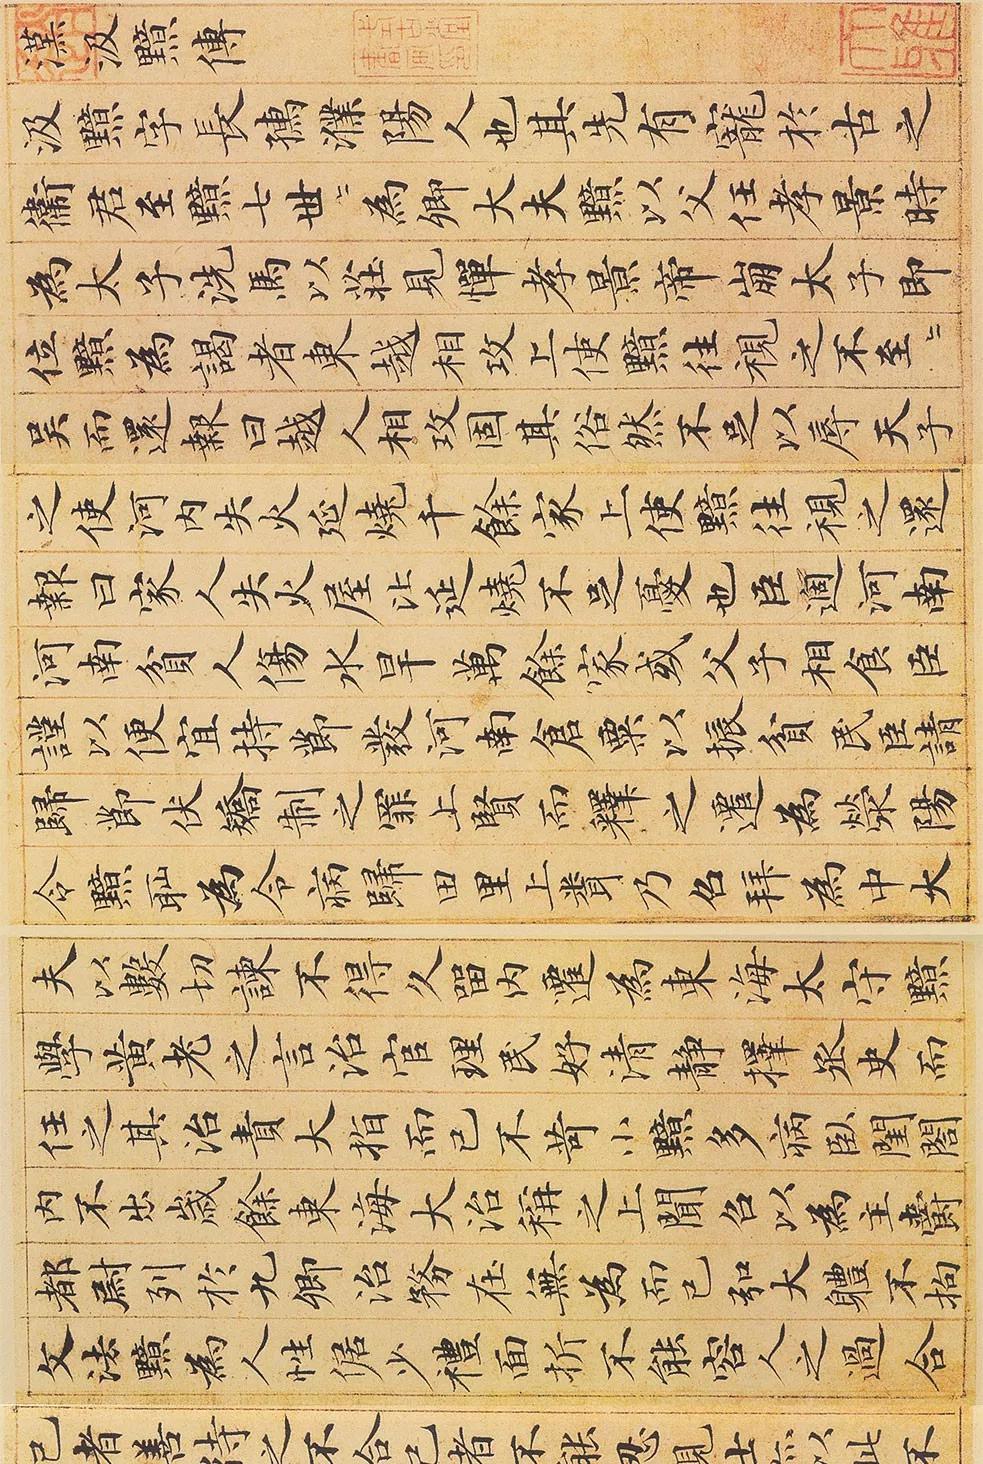 漢汲黯傳
汲黯字長孺濮陽人也其先有寵於古之
衛君至黯七世〻為卿大夫黯以父任孝景時
為太子洗馬以莊見憚孝景帝崩太子即
位黯為謁者東越相攻上使黯往視之不至〻
吳而還報曰越人相攻固其俗然不足以辱天子
之使河内失火延燒千餘家上使黯往視之還
報曰家人失火屋比延燒不足憂也臣過河南
河南貧人傷水旱萬餘家或父子相食臣
謹以便宜持節發河南倉粟以振貧民臣請
歸節伏矯制之罪上賢而釋之遷為滎陽
令黯耻為令病歸田里上聞乃召拜為中大
夫以數切諫不得久留内遷為東海太守黯
學黃老之言治官理民好清静擇丞史而
任之其治責大指而已不苛小黯多病臥閨閤
内不出歲餘東海大治稱之上聞召以為主爵
都尉列於九卿治務在無為而已弘大體不拘
文法黯為人性倨少禮面折不能容人之過合
己者善待之不合己者不能忍見士亦以此不